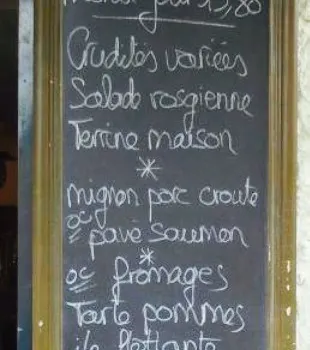 jour 13,80
Crudités variées
Salade rosgienne
Terrine maison
*
mignon porc croute
ou pavé saumon
*
ou fromages
Tarte pommes
ile flottante